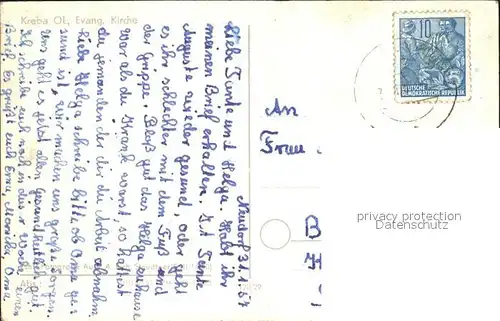 Kreba OL, Evang. Kirche
Neudorf 31.1.57
Liebe Tante und Helga. Habt ihr
meinen Brief erhalten. Ist Tante
Auguste wieder gesund, oder geht
es ihr schlechter mit dem Fuß und
der Grippe. Bloß gut das Helga zuhause
war als du Krank warst, so hattest
du jemanden der dir die Arbeit abnahm.
Liebe Helga schreibe bitte ob Oma ges
sund ist, wir machen uns große sorgen.
Uns geht es jetzt allen gesundheitlich gut.
Ich schreibe euch noch in dieser Woche einen
Brief. Es grüßt euch Erna, Monika, Oma
10
DEUTSCHE
DEMOKRATISCHE REPUBLIK
An
Frau
B
privacy protection
Datenschutz